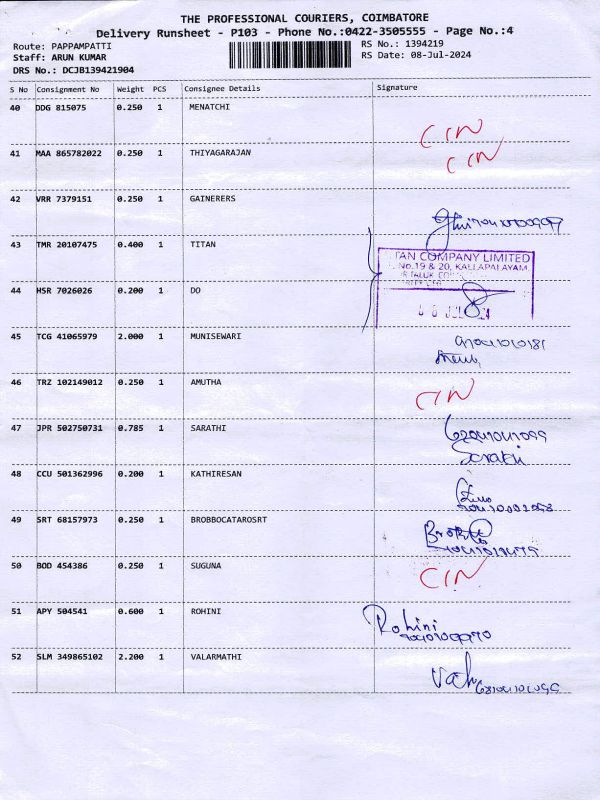 THE PROFESSIONAL COURIERS, COIMBATORE
Delivery Runsheet - P103 - Phone No.:0422-3505555 - Page No.:4
Route: PAPPAMPATTI
RS No.: 1394219
Staff: ARUN KUMAR
RS Date: 08-Jul-2024
DRS No.: DCJB139421904
S No Consignment No Weight PCS Consignee Details Signature
40 DDG 815075 0.250 1 MENATCHI
CIN
41 MAA 865782022 0.250 1 THIYAGARAJAN
CIN
42 VRR 7379151 0.250 1 GAINERERS
43 TMR 20107475 0.400 1 TITAN
TAN COMPANY LIMITED
No.19 & 20, KALLAPALAYAM,
44 HSR 7026026 0.200 1 DO
45 TCG 41065979 2.000 1 MUNISEWARI
46 TRZ 102149012 0.250 1 AMUTHA
CIN
47 JPR 502750731 0.785 1 SARATHI
48 CCU 501362996 0.200 1 KATHIRESAN
49 SRT 68157973 0.250 1 BROBBOCATAROSRT
50 BOD 454386 0.250 1 SUGUNA
CIN
51 APY 504541 0.600 1 ROHINI
Rohini
52 SLM 349865102 2.200 1 VALARMATHI